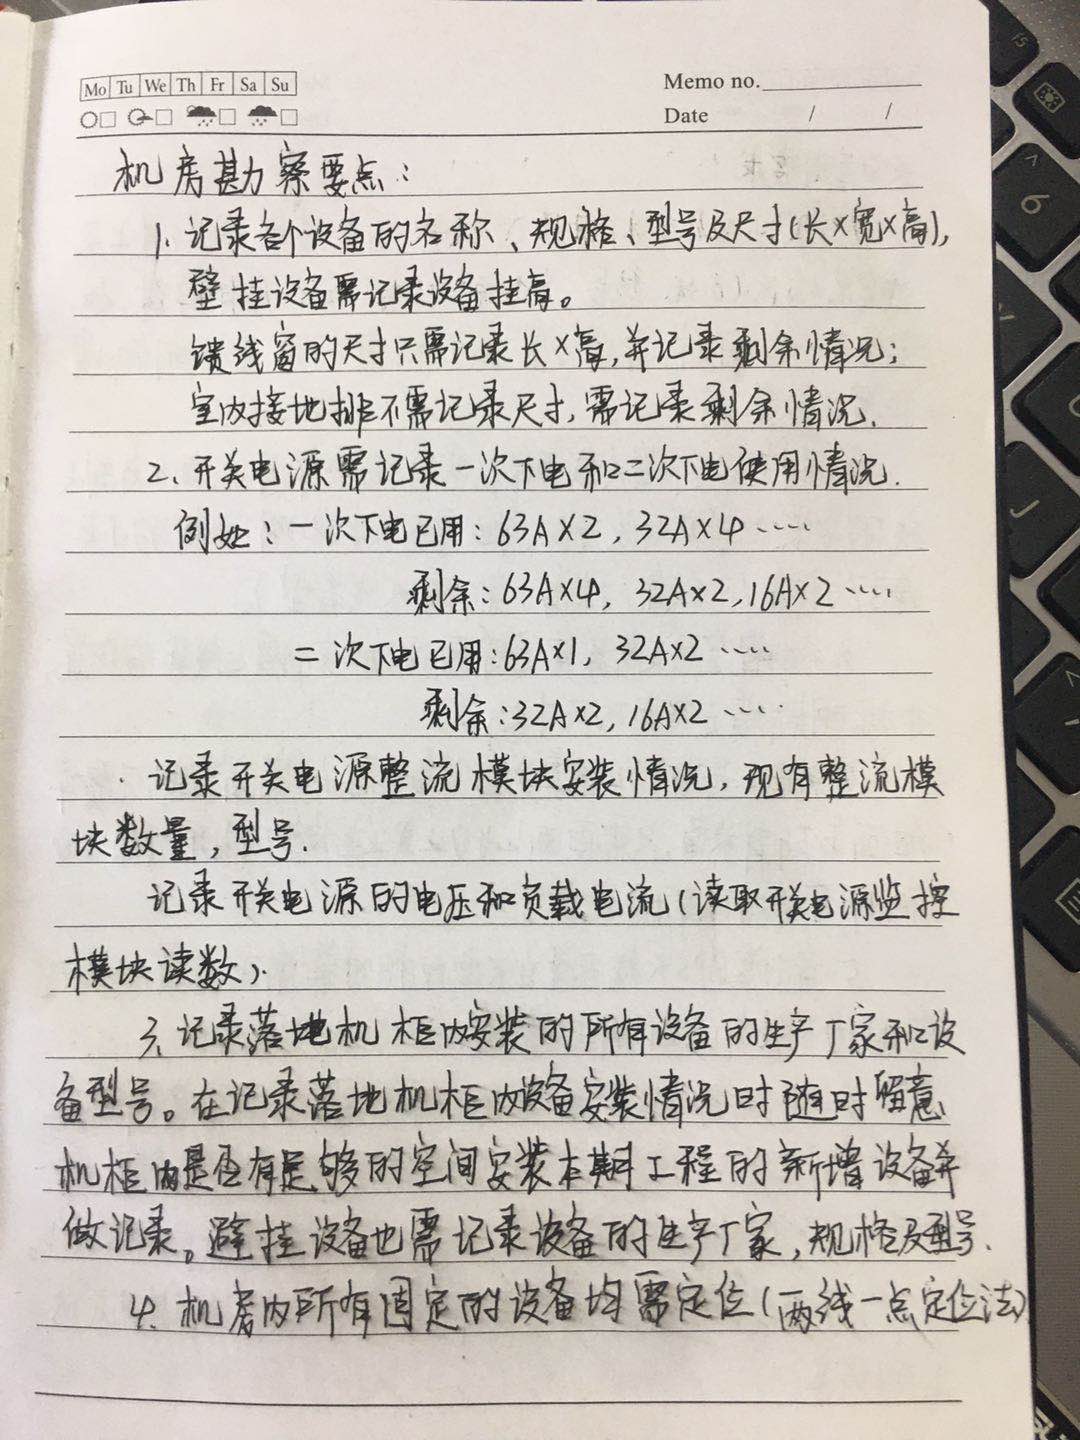 Mo Tu We Th Fr Sa Su
Memo no.
Date / /
机房勘察要点:
1、记录各个设备的名称、规格、型号及尺寸(长×宽×高),
壁挂设备需记录设备挂高。
馈线窗的尺寸只需记录长×高,并记录剩余情况;
室内接地排不需记录尺寸,需记录剩余情况.
2、开关电源需记录一次下电和二次下电使用情况.
例如:一次下电已用:63A×2,32A×4····
剩余:63A×4,32A×2,16A×2····
二次下电已用:63A×1,32A×2····
剩余:32A×2,16A×2····
记录开关电源整流模块安装情况,现有整流模
块数量,型号.
记录开关电源的电压和负载电流(读取开关电源监控
模块读数).
3、记录落地机柜内安装的所有设备的生产厂家和设
备型号。在记录落地机柜内设备安装情况时随时留意
机柜内是否有足够的空间安装本期工程的新增设备并
做记录。避挂设备也需记录设备的生产厂家,规格及型号.
4、机房内所有固定的设备均需定位(两线一点定位法)
6
J